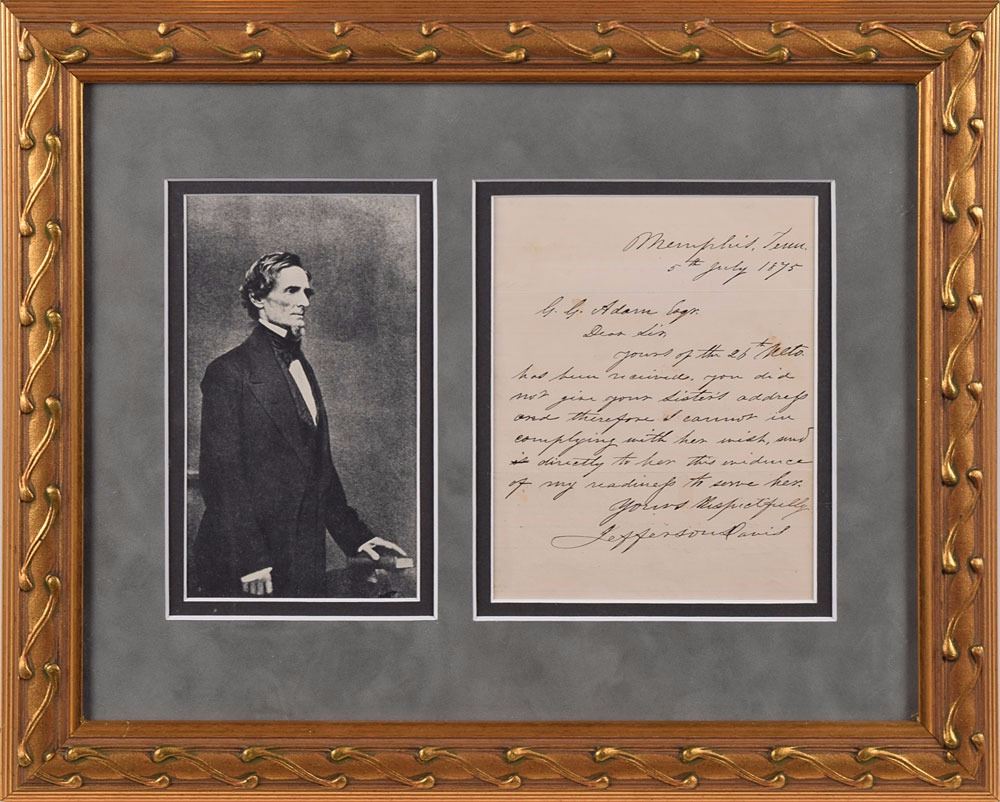 Memphis, Tenn.
5th July 1875
G. G. Adam Esqr.
Dear Sir,
yours of the 26th Ulto.
has been received. you did
not give your sisters address
and therefore I cannot in
complying with her wish, send
it directly to her this evidence
of my readiness to serve her.
Yours Respectfully
Jefferson Davis